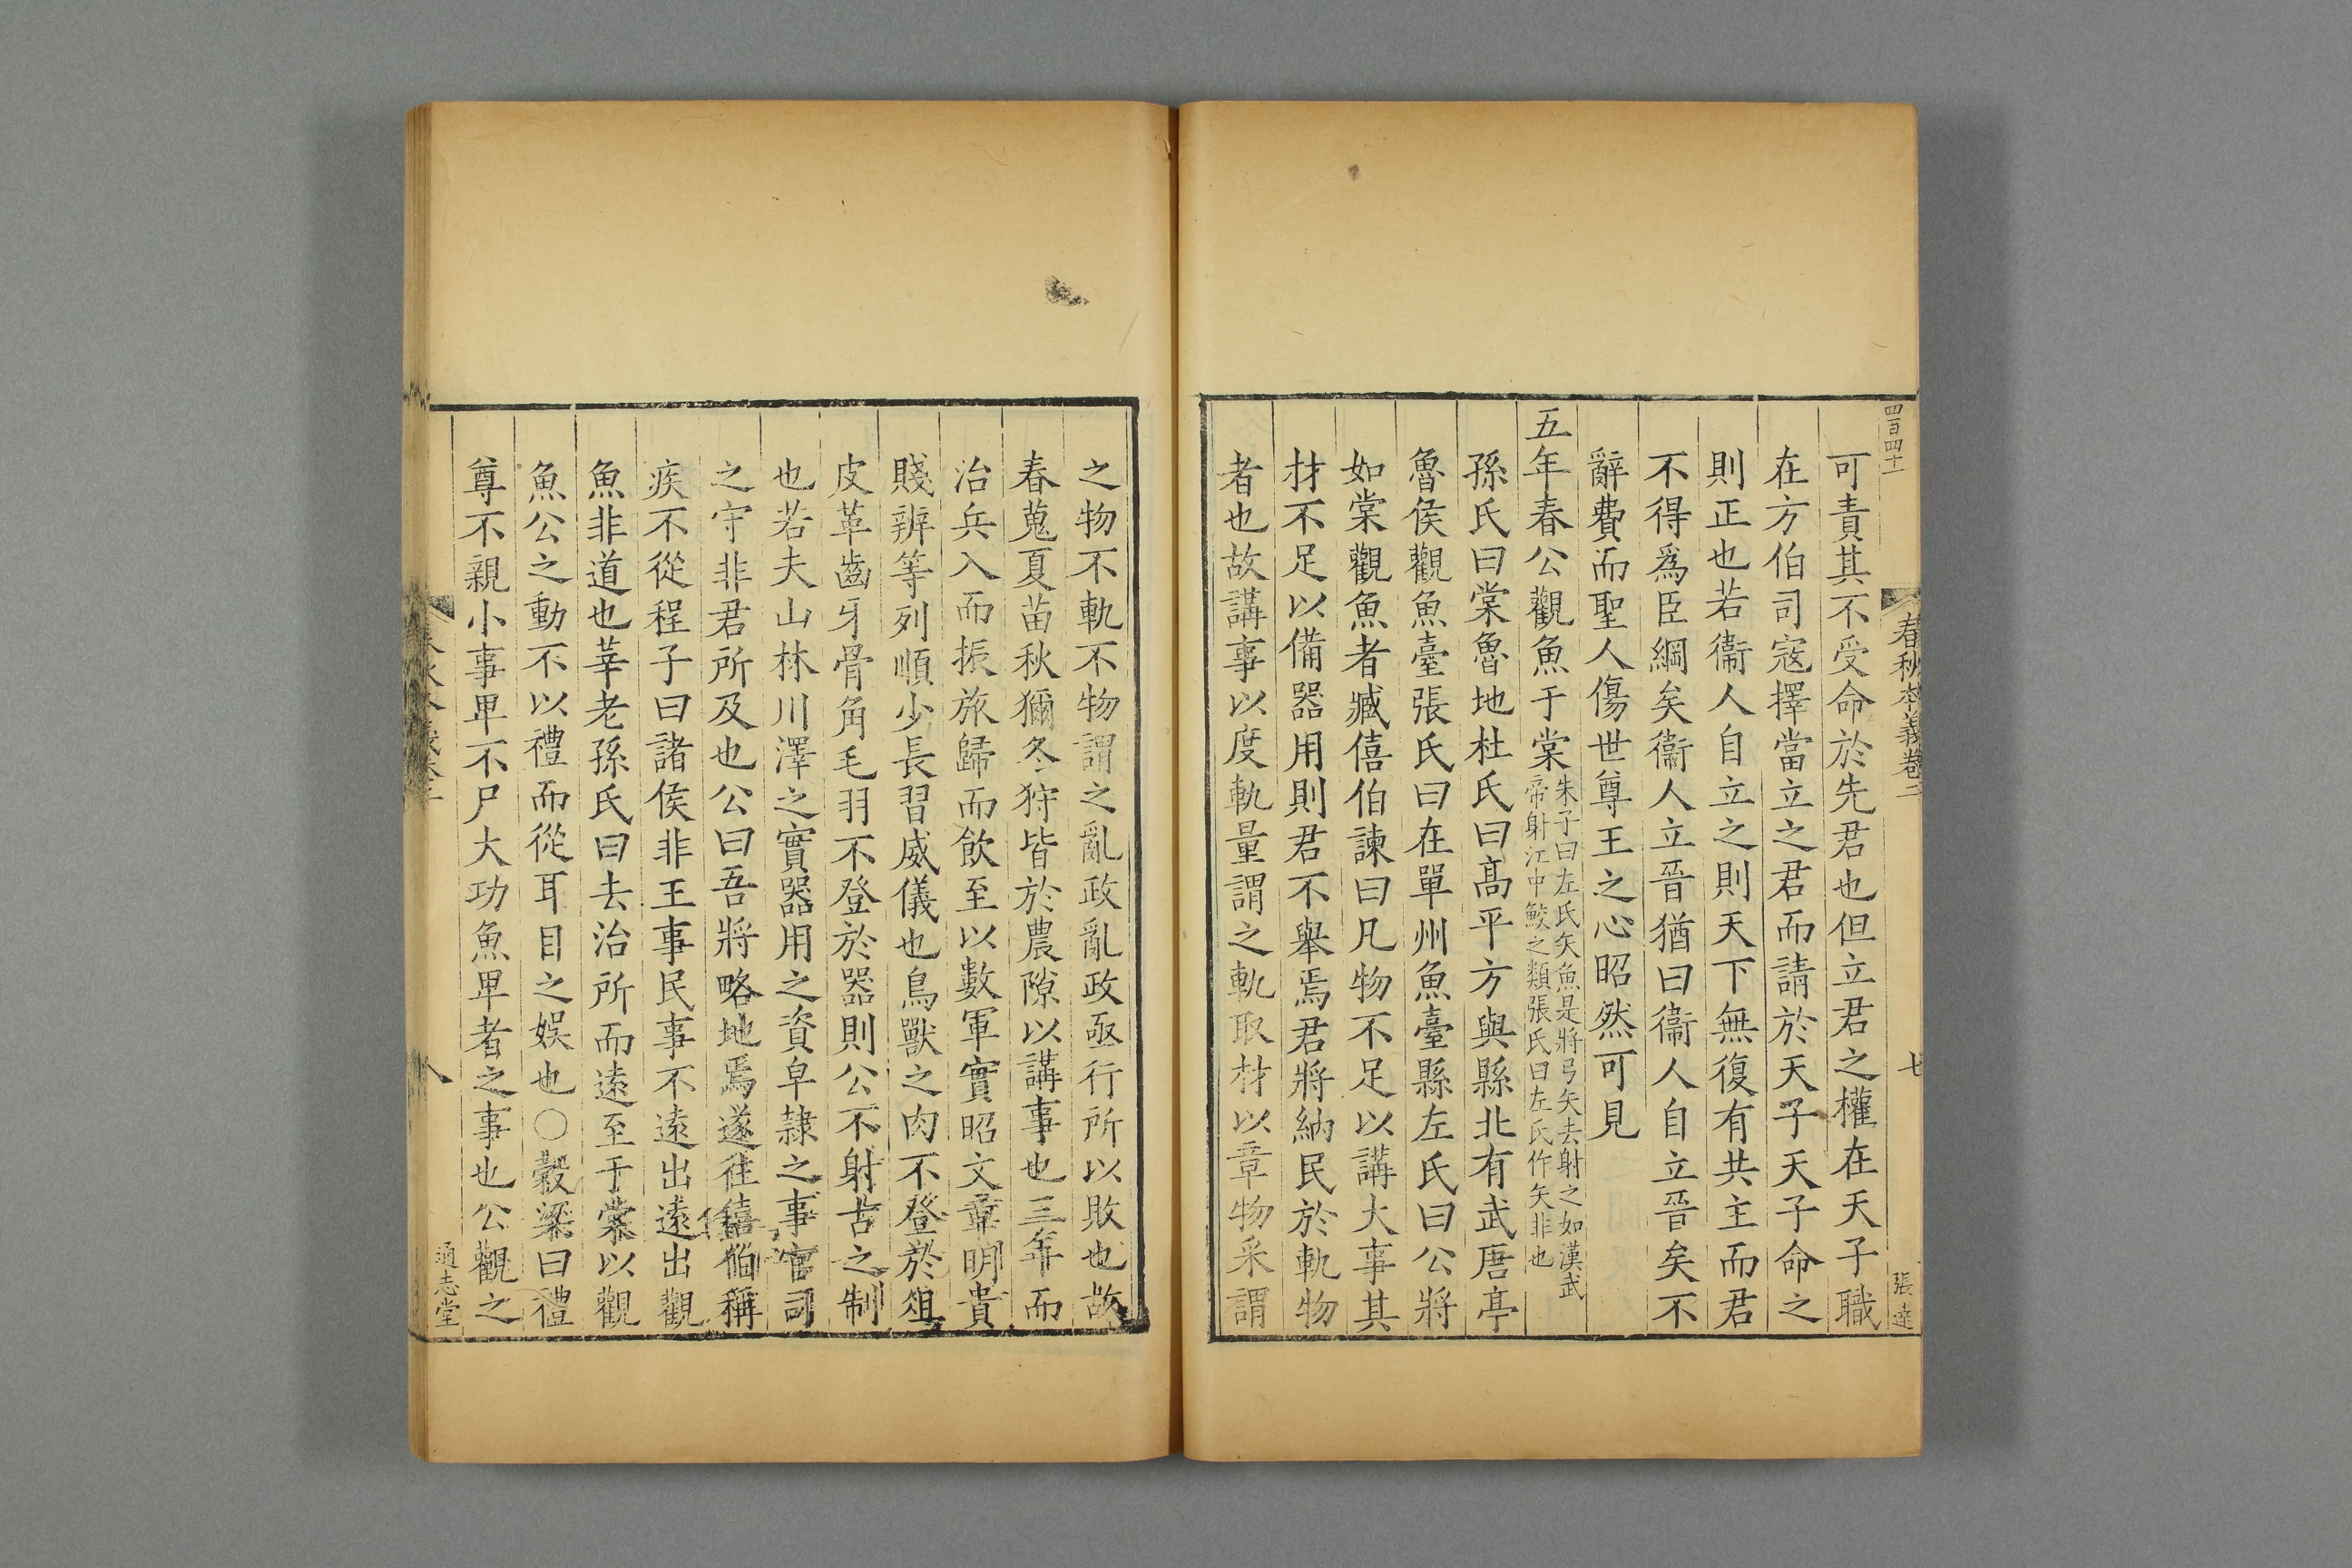 四百四十
春秋本義卷二
七
張達
可責其不受命於先君也但立君之權在天子職
在方伯司寇擇當立之君而請於天子天子命之
則正也若衞人自立之則天下無復有共主而君
不得爲臣綱矣衞人立晉猶曰衞人自立晉矣不
辭費而聖人傷世尊王之心昭然可見
五年春公觀魚于棠
朱子曰左氏矢魚是將弓矢去射之如漢武
帝射江中鮫之類張氏曰左氏作矢非也
孫氏曰棠魯地杜氏曰高平方與縣北有武唐亭
魯侯觀魚臺張氏曰在單州魚臺縣左氏曰公將
如棠觀魚者臧僖伯諫曰凡物不足以講大事其
材不足以備器用則君不舉焉君將納民於軌物
者也故講事以度軌量謂之軌取材以章物采謂
之物不軌不物謂之亂政亂政亟行所以敗也故
春蒐夏苗秋獮冬狩皆於農隙以講事也三年而
治兵入而振旅歸而飲至以數軍實昭文章明貴
賤辨等列順少長習威儀也鳥獸之肉不登於俎
皮革齒牙骨角毛羽不登於器則公不射古之制
也若夫山林川澤之實器用之資皁隸之事官司
之守非君所及也公曰吾將略地焉遂往僖伯稱
疾不從程子曰諸侯非王事民事不遠出遠出觀
魚非道也莘老孫氏曰去治所而遠至于棠以觀
魚公之動不以禮而從耳目之娛也○穀梁曰禮
尊不親小事卑不尸大功魚卑者之事也公觀之
八
通志堂